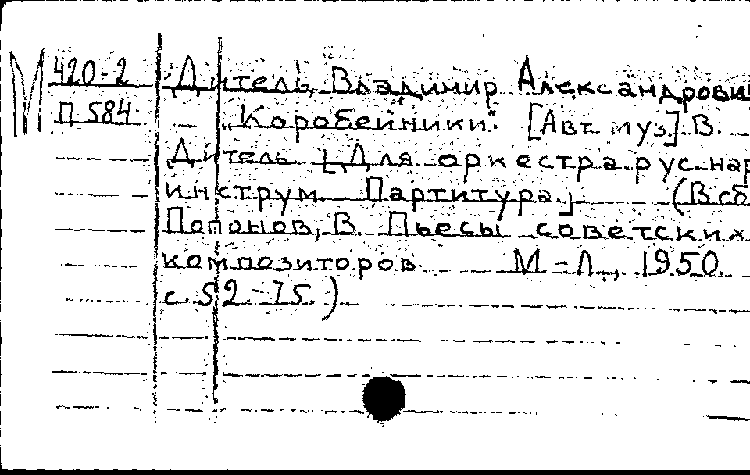 М 420-2 Дитель, Владимир Александрови
П 584 „Коробейники". [Авт. муз.] В.
Дитель [Для оркестра рус нар
инструм. Партитура] (В сб
Попонов, В. Пьесы советских
композиторов М-Л., 1950.
с 52-75)